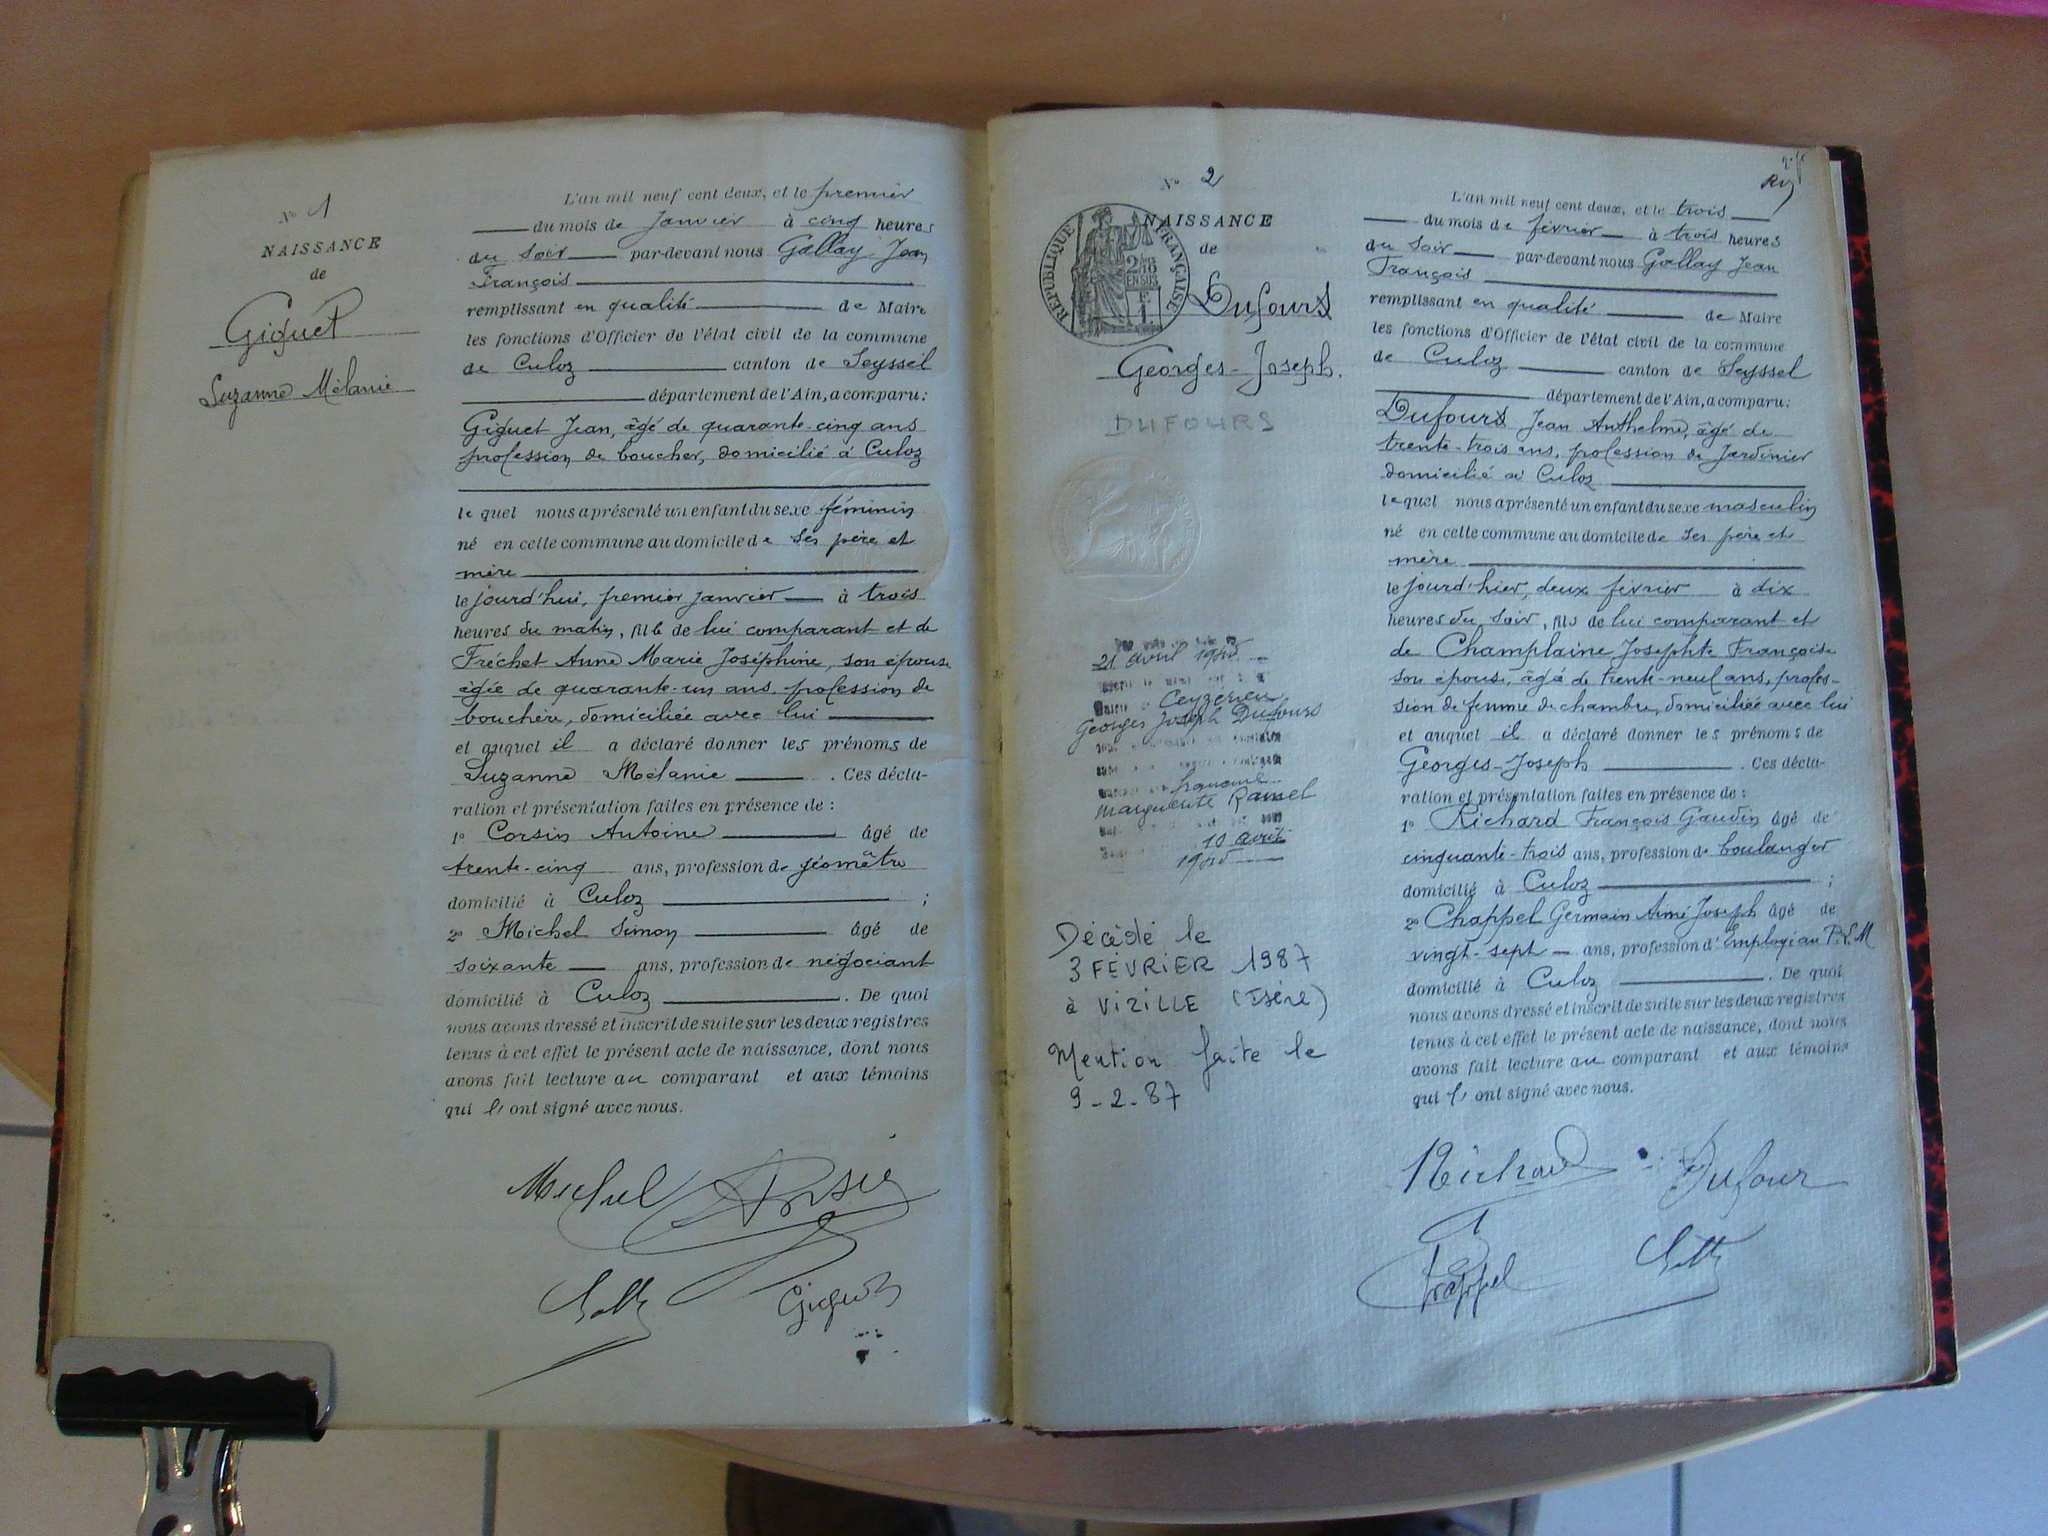 N° 1
NAISSANCE
de
Giguet
Suzanne Mélanie
L'an mil neuf cent deux, et le premier
du mois de Janvier à cinq heures
du soir par-devant nous Gallay Jean
François
remplissant en qualité de Maire
les fonctions d'Officier de l'état civil de la commune
de Culoz canton de Seyssel
département de l'Ain, a comparu :
Giguet Jean, âgé de quarante-cinq ans
profession de boucher, domicilié à Culoz
le quel nous a présenté un enfant du sexe féminin
né en cette commune au domicile de ses père et
mère
le jourd'hui, premier janvier à trois
heures du matin, fille de lui comparant et de
Fréchet Anne Marie Joséphine, son épouse
âgée de quarante-un ans, profession de
bouchère, domiciliée avec lui
et auquel il a déclaré donner les prénoms de
Suzanne Mélanie . Ces décla-
ration et présentation faites en présence de :
1° Corsin Antoine âgé de
trente-cinq ans, profession de géomètre
domicilié à Culoz ;
2° Michel Simon âgé de
soixante ans, profession de négociant
domicilié à Culoz . De quoi
nous avons dressé et inscrit de suite sur les deux registres
tenus à cet effet le présent acte de naissance, dont nous
avons fait lecture au comparant et aux témoins
qui l' ont signé avec nous.
Michel
Giguet
N° 2
NAISSANCE
de
RÉPUBLIQUE FRANÇAISE
Dufours
Georges-Joseph.
DUFOURS
21 avril
Ceyzerieu
Georges Joseph Dufours
Marguerite Ramel
10 avril
Décédé le
3 FÉVRIER 1987
à VIZILLE (Isère)
Mention faite le
9-2-87
L'an mil neuf cent deux, et le trois
du mois de février à trois heures
du soir par-devant nous Gallay Jean
François
remplissant en qualité de Maire
les fonctions d'Officier de l'état civil de la commune
de Culoz canton de Seyssel
département de l'Ain, a comparu :
Dufours Jean Anthelme, âgé de
trente-trois ans, profession de Jardinier
domicilié à Culoz
le quel nous a présenté un enfant du sexe masculin
né en cette commune au domicile de ses père et
mère
le jourd'hier, deux février à dix
heures du soir, fils de lui comparant et
de Champlaine Josephte Françoise
son épouse, âgée de trente-neuf ans, profes-
sion de femme de chambre, domiciliée avec lui
et auquel il a déclaré donner les prénoms de
Georges-Joseph . Ces décla-
ration et présentation faites en présence de :
1° Richard François Gaudin âgé de
cinquante-trois ans, profession de boulanger
domicilié à Culoz ;
2° Chappel Germain Aimé Joseph âgé de
vingt-sept ans, profession d'Employé au P.L.M
domicilié à Culoz . De quoi
nous avons dressé et inscrit de suite sur les deux registres
tenus à cet effet le présent acte de naissance, dont nous
avons fait lecture au comparant et aux témoins
qui l' ont signé avec nous.
Richard Dufour
Chappel